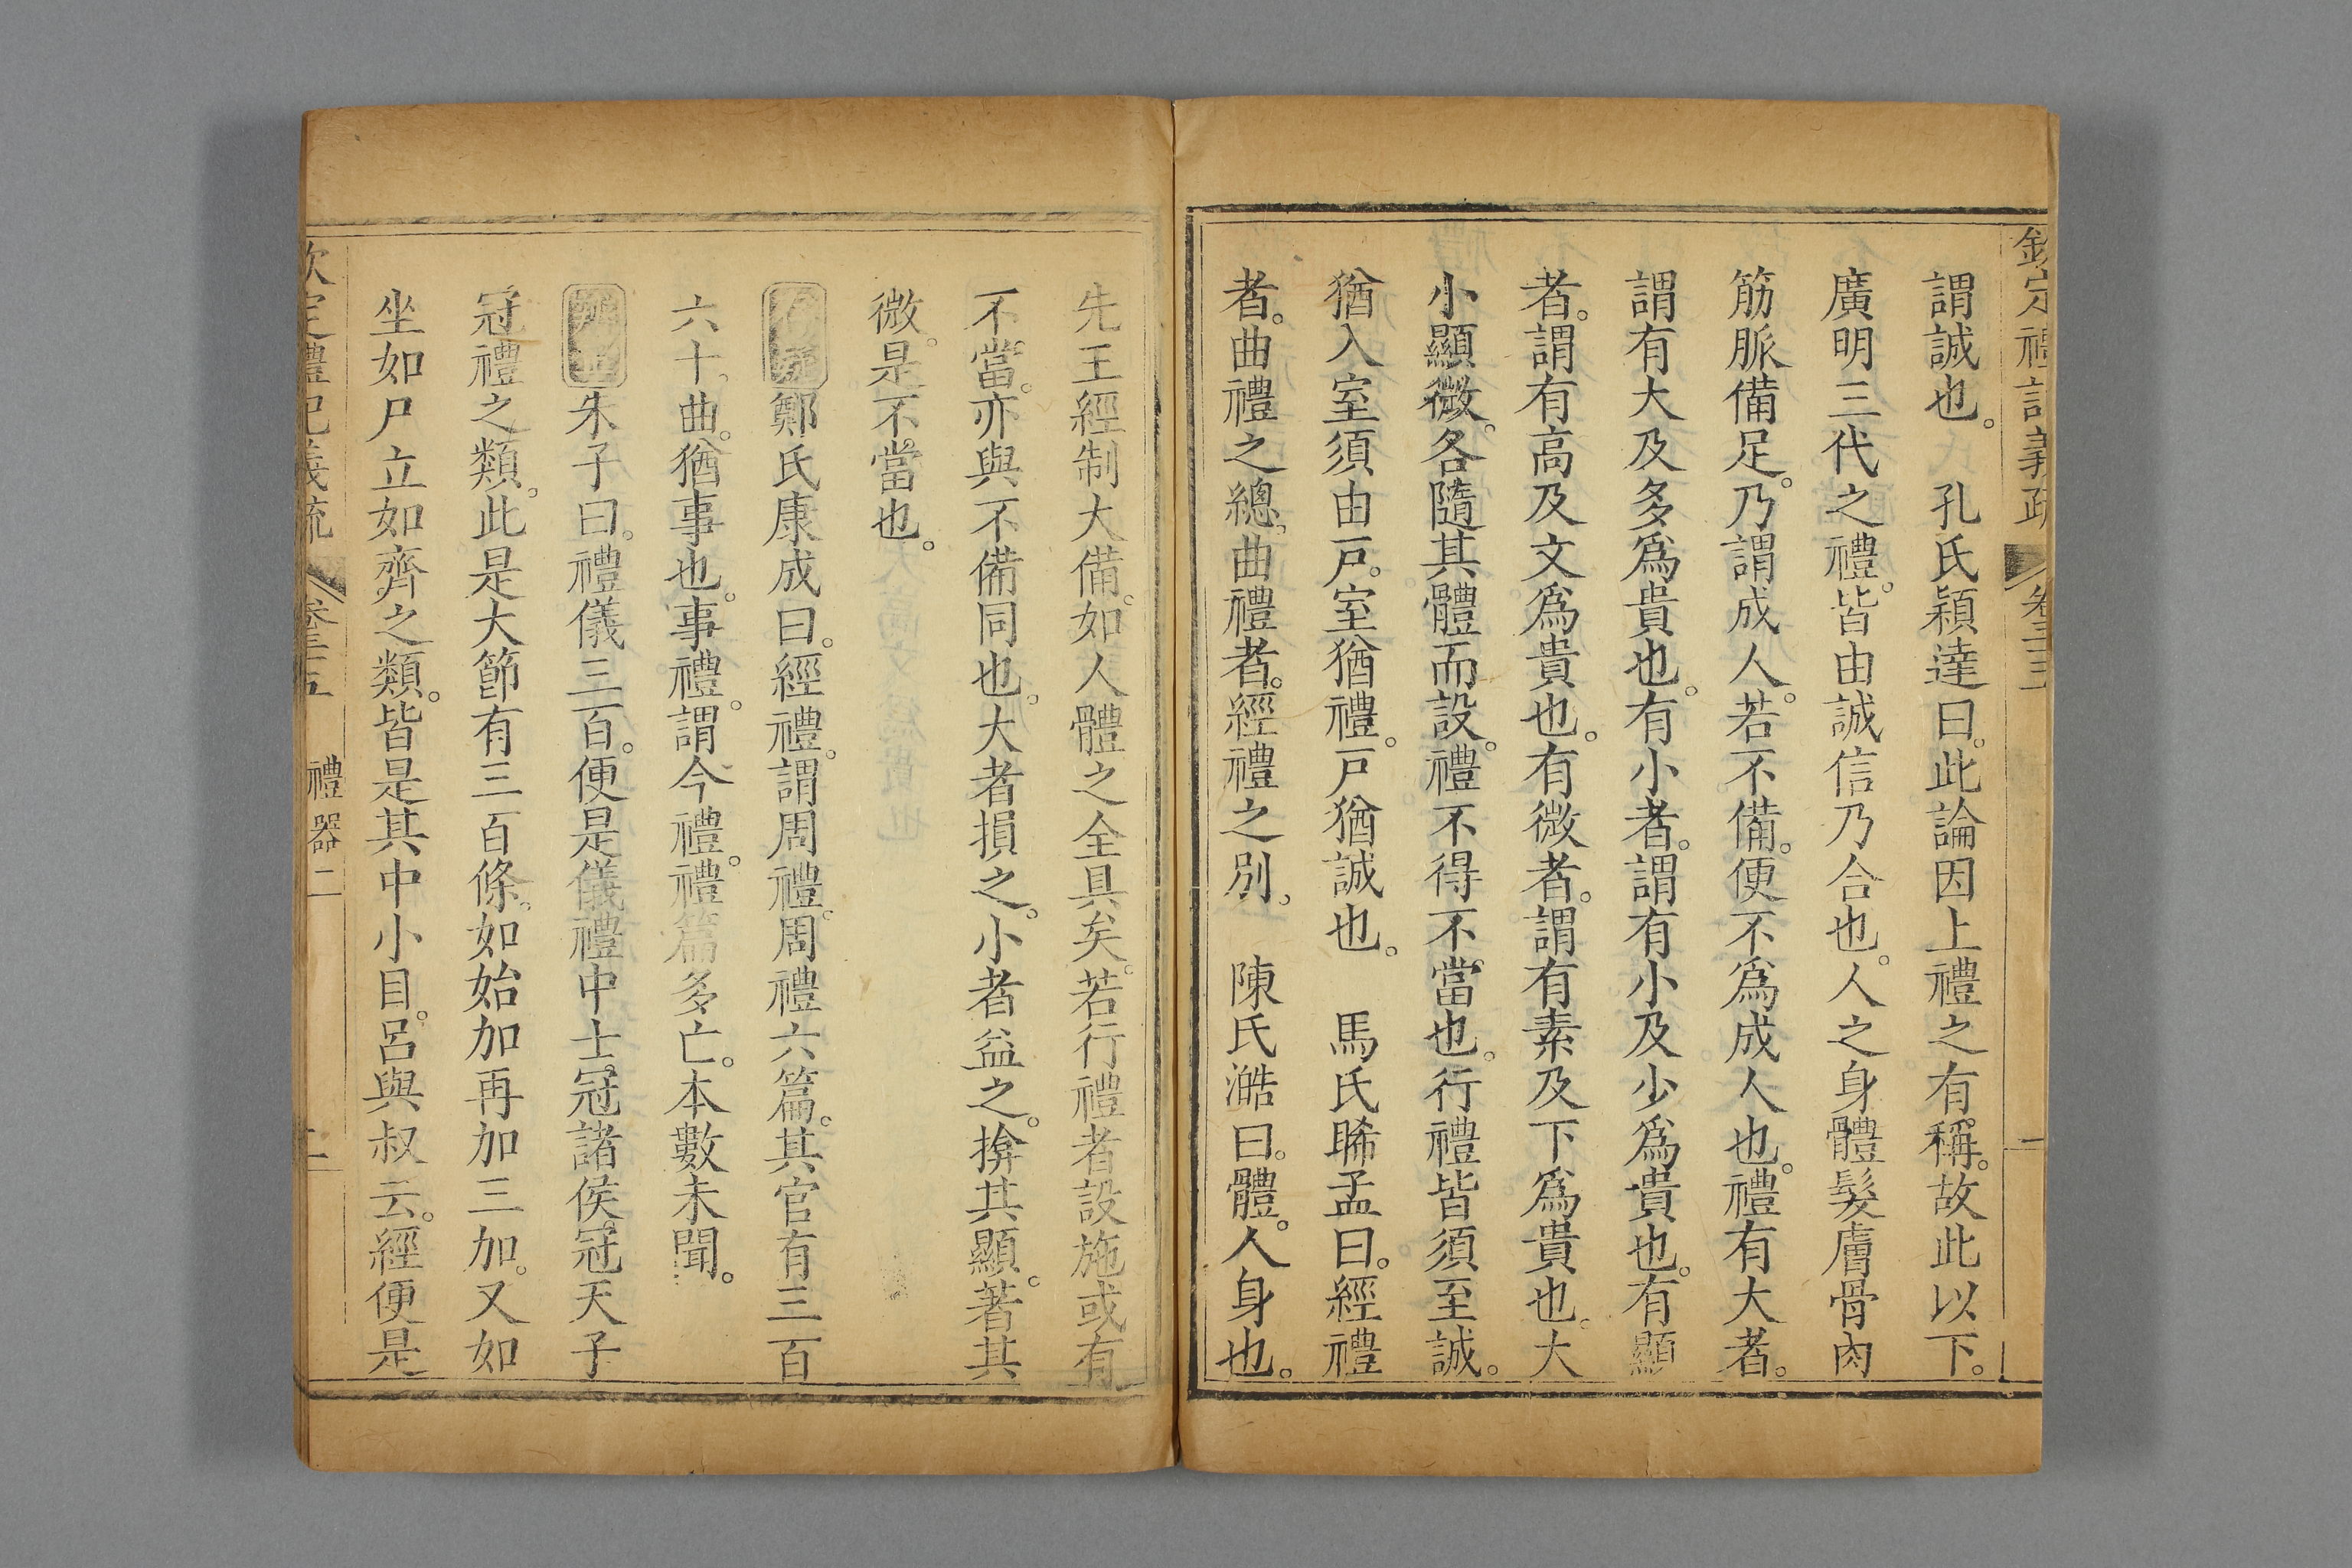 謂誠也。　孔氏穎達曰。此論因上禮之有稱。故此以下。
廣明三代之禮。皆由誠信乃合也。人之身體髮膚骨肉
筋脈備足。乃謂成人。若不備。便不爲成人也。禮有大者。
謂有大及多爲貴也。有小者。謂有小及少爲貴也。有顯
者。謂有高及文爲貴也。有微者。謂有素及下爲貴也。大
小顯微。各隨其體而設。禮不得不當也。行禮皆須至誠。
猶入室須由戸。室猶禮。戸猶誠也。　馬氏睎孟曰。經禮
者。曲禮之總。曲禮者。經禮之別。　陳氏澔曰。體。人身也。
先王經制大備。如人體之全具矣。若行禮者設施或有
不當。亦與不備同也。大者損之。小者益之。揜其顯。著其
微。是不當也。
鄭氏康成曰。經禮。謂周禮。周禮六篇。其官有三百
六十。曲。猶事也。事禮。謂今禮。禮篇多亡。本數未聞。
朱子曰。禮儀三百。便是儀禮中士冠諸侯冠天子
冠禮之類。此是大節有三百條。如始加再加三加。又如
坐如尸立如齊之類。皆是其中小目。呂與叔云。經便是
欽定禮記義疏　禮器二